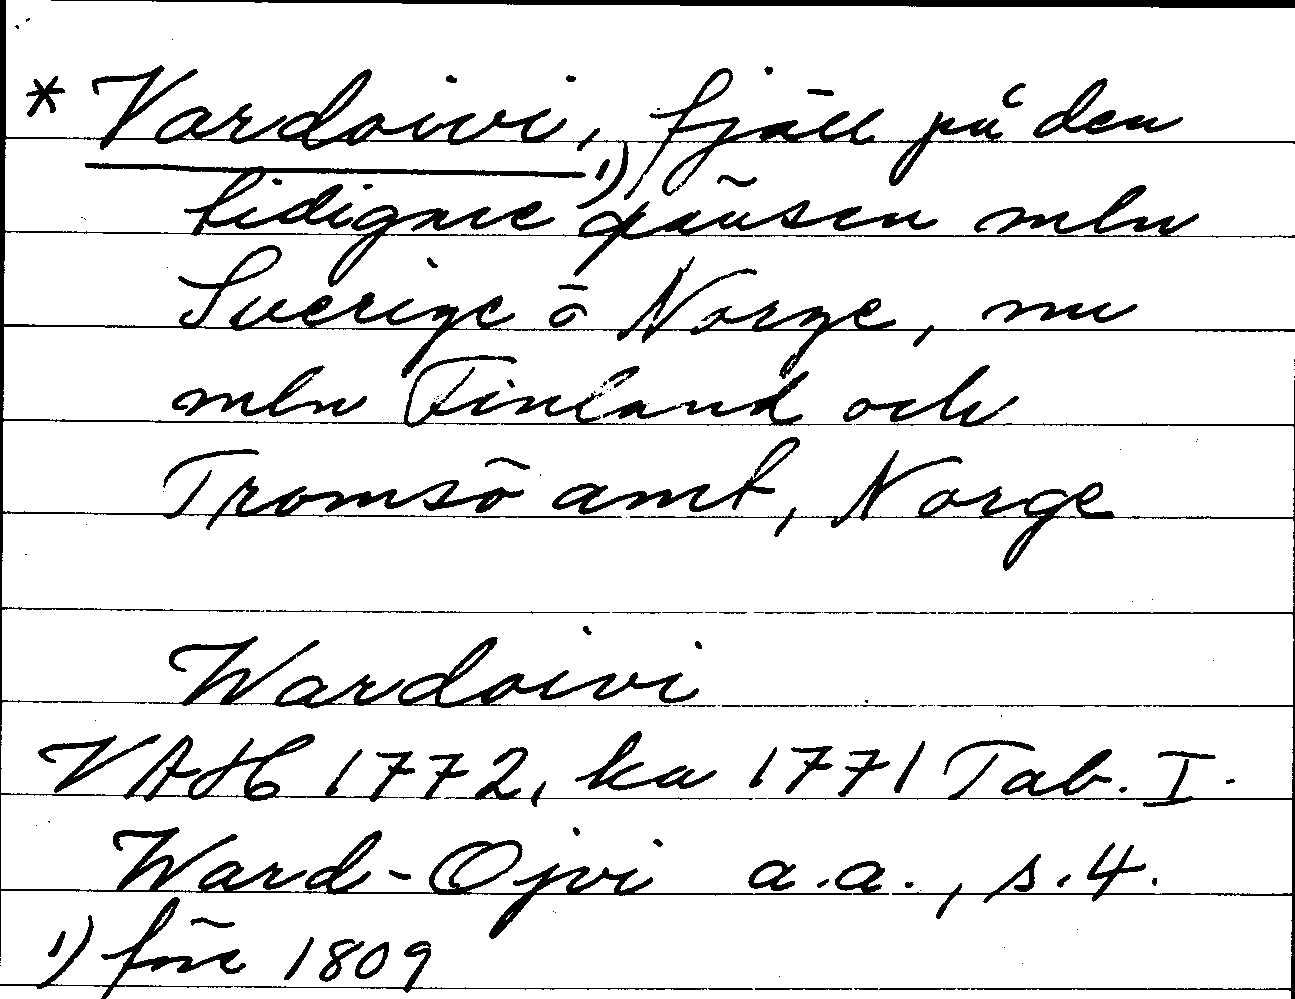 * Vardoivi, fjäll på den
tidigare ¹) gränsen mln
Sverige o Norge, nu
mln Finland och
Tromsö amt, Norge
Wardoivi
VAH 1772, ka 1771 Tab. I.
Ward-Ojvi a.a., s.4.
¹) före 1809